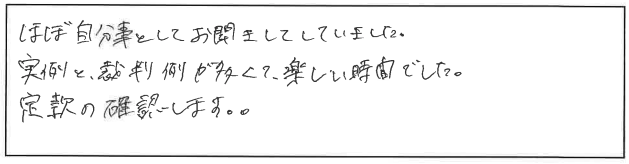 ほぼ自分事としてお聞きしてしていました。
実例と、裁判例が多くて、楽しい時間でした。
定款の確認します。。